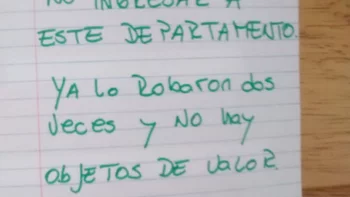 NO INGRESAR A
ESTE DEPARTAMENTO.
YA LO RobaRon dos
Veces y No hay
objETOS DE VALOR.